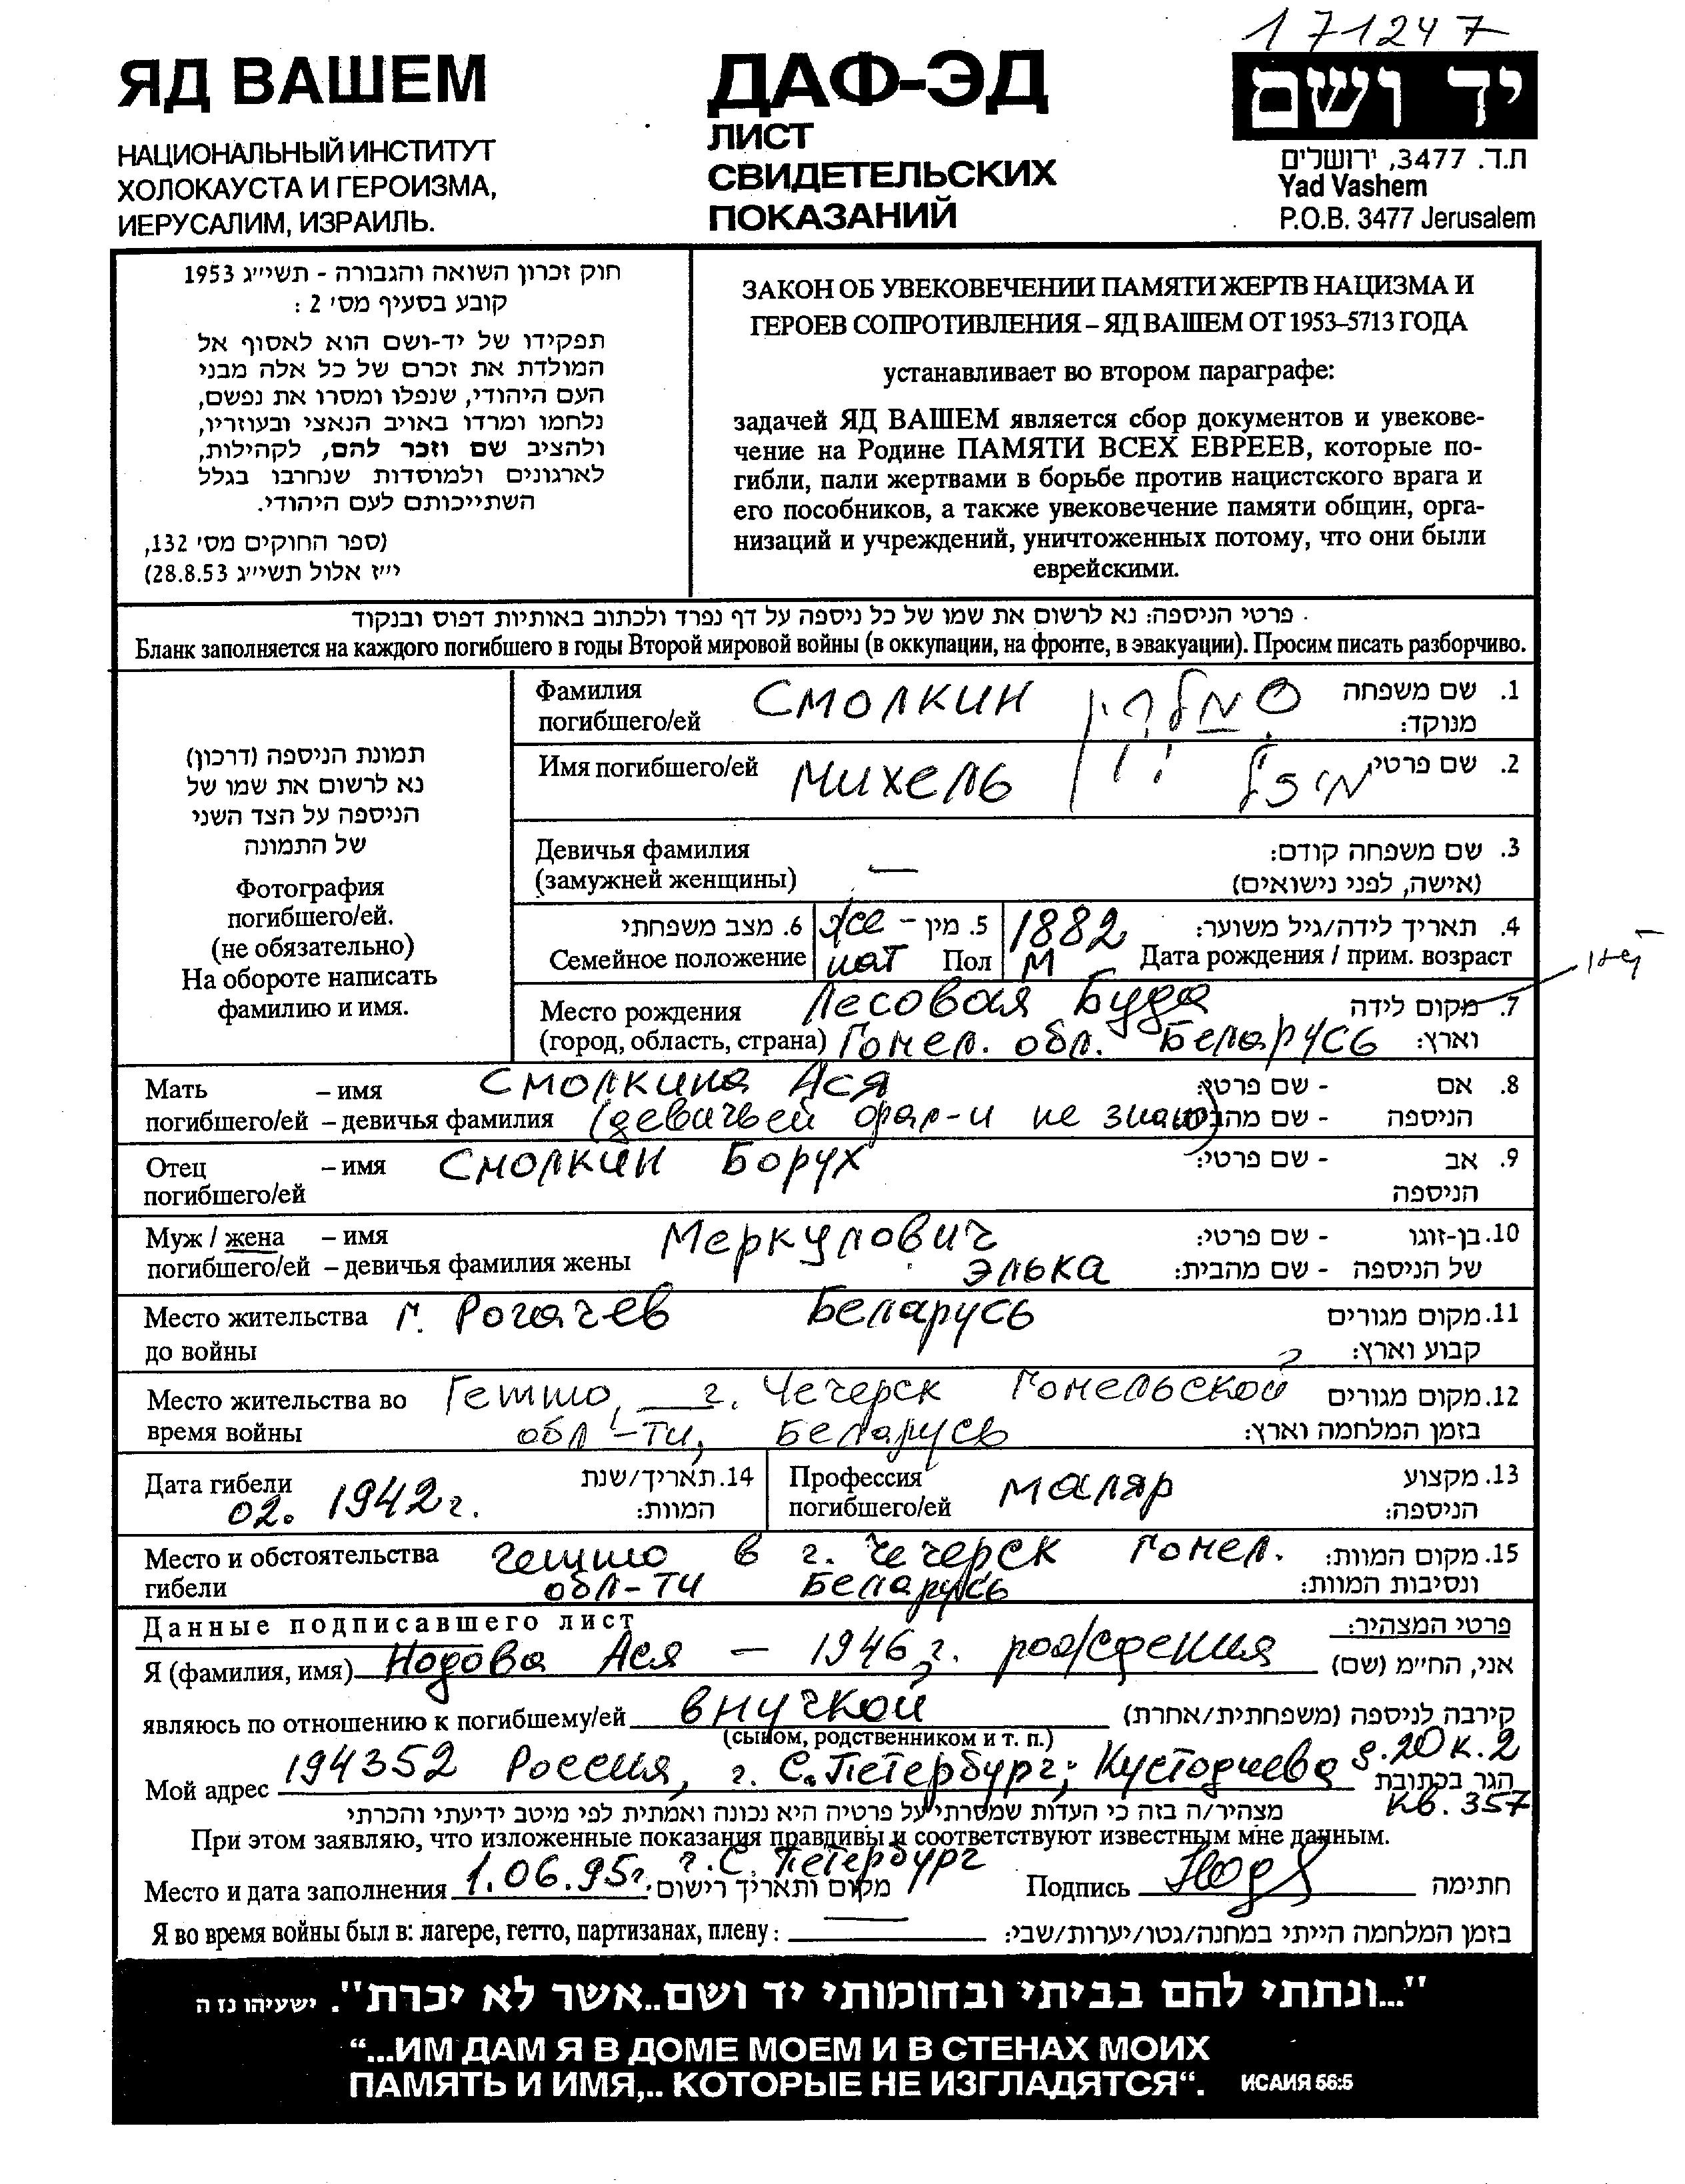 171247
ЯД ВАШЕМ
НАЦИОНАЛЬНЫЙ ИНСТИТУТ
ХОЛОКАУСТА И ГЕРОИЗМА,
ИЕРУСАЛИМ, ИЗРАИЛЬ.
ДАФ-ЭД
ЛИСТ
СВИДЕТЕЛЬСКИХ
ПОКАЗАНИЙ
יד ושם
ת.ד. 3477, ירושלים
Yad Vashem
P.O.B. 3477 Jerusalem
חוק זכרון השואה והגבורה - תשי״ג 1953
קובע בסעיף מס׳ 2 :
תפקידו של יד-ושם הוא לאסוף אל
המולדת את זכרם של כל אלה מבני
העם היהודי, שנפלו ומסרו את נפשם,
נלחמו ומרדו באויב הנאצי ובעוזריו,
ולהציב שם וזכר להם, לקהילות,
לארגונים ולמוסדות שנחרבו בגלל
השתייכותם לעם היהודי.
(ספר החוקים מס׳ 132,
י״ז אלול תשי״ג 28.8.53)
ЗАКОН ОБ УВЕКОВЕЧЕНИИ ПАМЯТИ ЖЕРТВ НАЦИЗМА И
ГЕРОЕВ СОПРОТИВЛЕНИЯ – ЯД ВАШЕМ ОТ 1953–5713 ГОДА
устанавливает во втором параграфе:
задачей ЯД ВАШЕМ является сбор документов и увекове-
чение на Родине ПАМЯТИ ВСЕХ ЕВРЕЕВ, которые по-
гибли, пали жертвами в борьбе против нацистского врага и
его пособников, а также увековечение памяти общин, орга-
низаций и учреждений, уничтоженных потому, что они были
еврейскими.
פרטי הניספה: נא לרשום את שמו של כל ניספה על דף נפרד ולכתוב באותיות דפוס ובנקוד .
Бланк заполняется на каждого погибшего в годы Второй мировой войны (в оккупации, на фронте, в эвакуации). Просим писать разборчиво.
תמונת הניספה (דרכון)
נא לרשום את שמו של
הניספה על הצד השני
של התמונה
Фотография
погибшего/ей.
(не обязательно)
На обороте написать
фамилию и имя.
Фамилия СМОЛКИН סמלקין 1. שם משפחה
погибшего/ей מנוקד:
Имя погибшего/ей Михель מיכל 2. שם פרטי
Девичья фамилия — 3. שם משפחה קודם:
(замужней женщины) (אישה, לפני נישואים)
6. מצב משפחתי же- 5. מין 1882 4. תאריך לידה/גיל משוער:
Семейное положение нат Пол М Дата рождения / прим. возраст
Место рождения Лесовая Буда 7. מקום לידה
(город, область, страна) Гомел. обл. Беларусь וארץ:
Мать – имя Смолкина Ася 8. אם - שם פרטי:
погибшего/ей – девичья фамилия (девичьей фам-и не знаю) הניספה - שם מהבית:
Отец – имя Смолкин Борух 9. אב - שם פרטי:
погибшего/ей הניספה
Муж / жена – имя Меркулович 10. בן-זוגו - שם פרטי:
погибшего/ей – девичья фамилия жены Элька של הניספה - שם מהבית:
Место жительства г. Рогачев Беларусь 11. מקום מגורים
до войны קבוע וארץ:
Место жительства во Гетто, г. Чечерск Гомельской 12. מקום מגורים
время войны обл-ти, Беларусь בזמן המלחמה וארץ:
Дата гибели 02. 1942 г. 14. תאריך/שנת המוות:
Профессия маляр 13. מקצוע
погибшего/ей הניספה:
Место и обстоятельства гетто в г. Чечерск Гомел. 15. מקום המוות:
гибели обл-ти Беларусь ונסיבות המוות:
Данные подписавшего лист פרטי המצהיר:
Я (фамилия, имя) Нодова Ася — 1946 г. рождения אני, החי״מ (שם)
являюсь по отношению к погибшему/ей внучкой קירבה לניספה (משפחתית/אחרת)
(сыном, родственником и т. п.)
Мой адрес 194352 Россия, г. С. Петербург; Кустодиева д. 20 к. 2 הגר בכתובת
кв. 357
מצהיר/ה בזה כי העדות שמסרתי על פרטיה היא נכונה ואמתית לפי מיטב ידיעתי והכרתי
При этом заявляю, что изложенные показания правдивы и соответствуют известным мне данным.
Место и дата заполнения 1.06.95г. г. С. Петербург מקום ותאריך רישום Подпись חתימה
Я во время войны был в: лагере, гетто, партизанах, плену: — בזמן המלחמה הייתי במחנה/גטו/יערות/שבי:
"...ונתתי להם בביתי ובחומותי יד ושם..אשר לא יכרת". ישעיהו נז ה
“...ИМ ДАМ Я В ДОМЕ МОЕМ И В СТЕНАХ МОИХ
ПАМЯТЬ И ИМЯ,.. КОТОРЫЕ НЕ ИЗГЛАДЯТСЯ“. ИСАИЯ 56:5